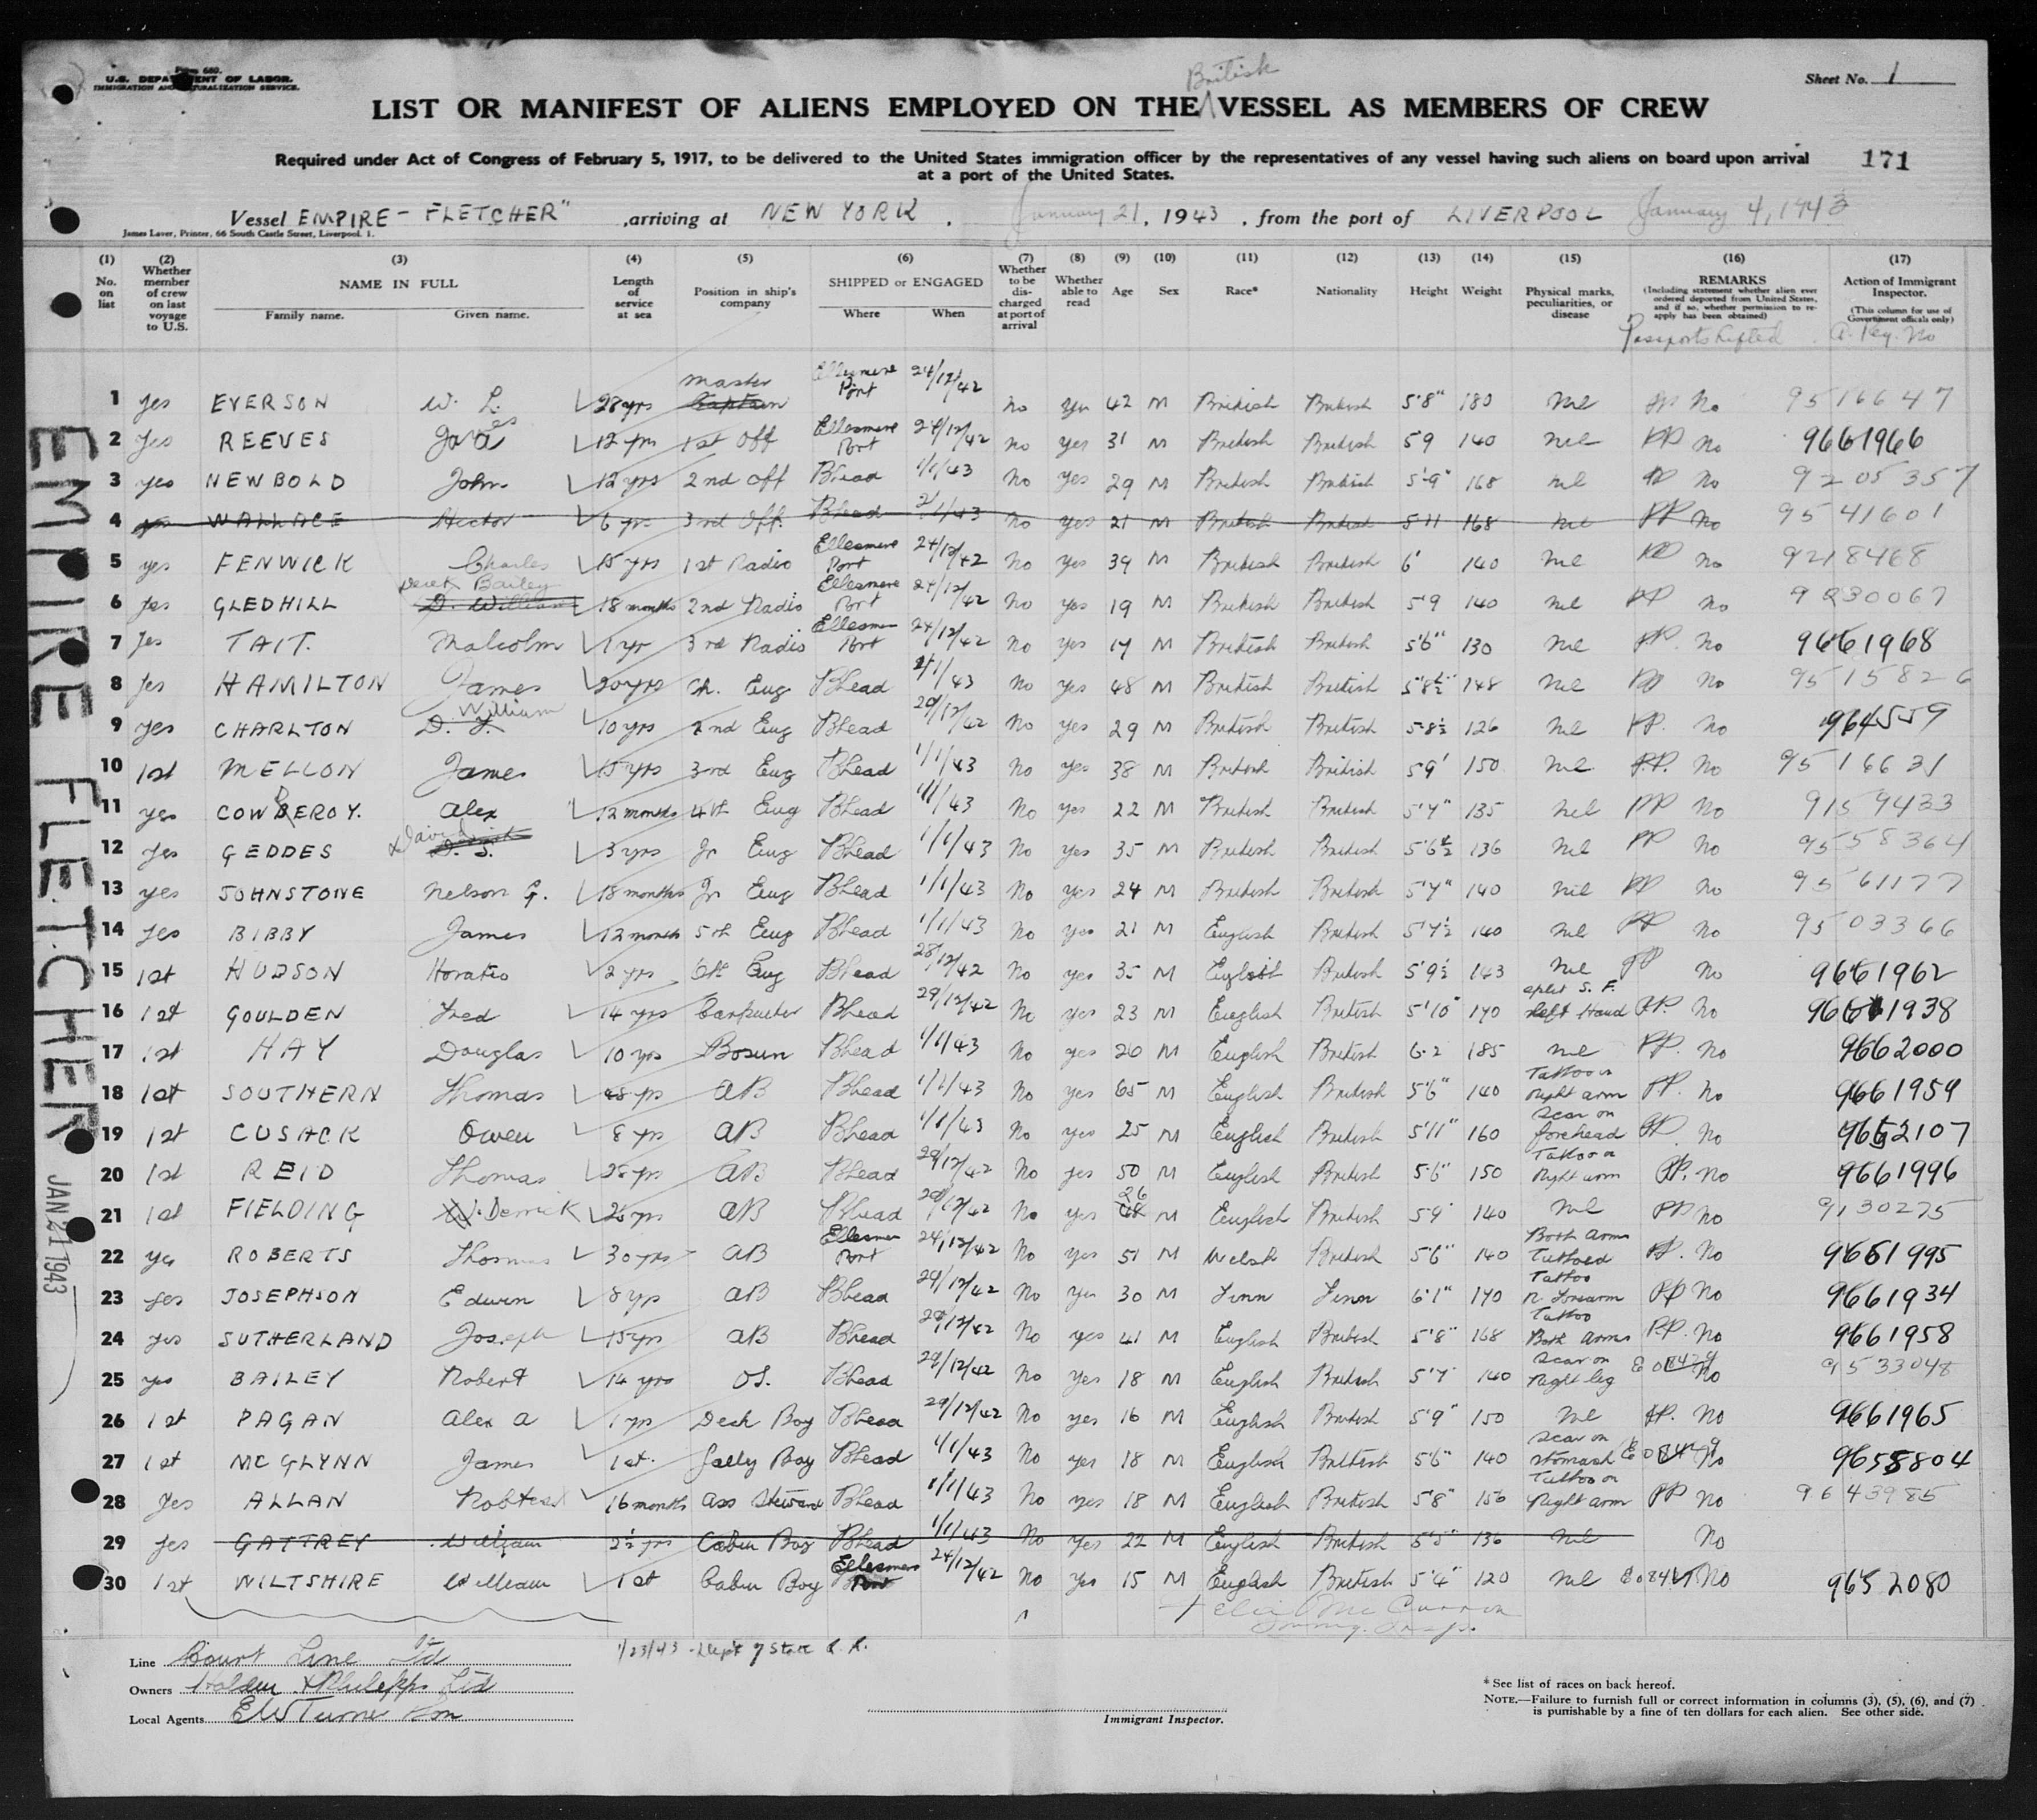 Form 680.
U.S. DEPARTMENT OF LABOR.
IMMIGRATION AND NATURALIZATION SERVICE.
Sheet No. 1
British
LIST OR MANIFEST OF ALIENS EMPLOYED ON THE VESSEL AS MEMBERS OF CREW
Required under Act of Congress of February 5, 1917, to be delivered to the United States immigration officer by the representatives of any vessel having such aliens on board upon arrival
at a port of the United States.
171
Vessel EMPIRE - FLETCHER" , arriving at NEW YORK , January 21, 1943 , from the port of LIVERPOOL January 4, 1943
James Laver, Printer, 66 South Castle Street, Liverpool. 1.
(1) No. on list (2) Whether member of crew on last voyage to U.S. (3) NAME IN FULL Family name. Given name. (4) Length of service at sea (5) Position in ship's company (6) SHIPPED or ENGAGED Where When (7) Whether to be discharged at port of arrival (8) Whether able to read (9) Age (10) Sex (11) Race* (12) Nationality (13) Height (14) Weight (15) Physical marks, peculiarities, or disease (16) REMARKS (Including statement whether alien ever ordered deported from United States, and if so, whether permission to re-apply has been obtained) (17) Action of Immigrant Inspector. (This column for use of Government officals only)
Passports Lifted A. Reg. No
1 yes EVERSON W. L. 28 yrs Master Captain Ellesmere Port 24/12/42 No Yes 42 M British British 5'8" 180 Nil No 9516647
2 Yes REEVES James 12 yrs 1st Off Ellesmere Port 24/12/42 no yes 31 M British British 5 9 140 nil PP No 9661966
3 yes NEWBOLD John 12 yrs 2nd Off Bhead 1/1/43 No Yes 29 M British British 5'9" 168 nil PP No 9205357
4 yes WALLACE Hector 6 yrs 3rd Off. Bhead 2/1/43 No yes 21 M British British 5 11 168 Nil PP No 9541601
5 yes FENWICK Charles 15 yrs 1st Radio Ellesmere Port 24/12/42 No Yes 39 M British British 6' 140 Nil PP No 9218468
6 Yes GLEDHILL Derek Bailey D. William 18 months 2nd Radio Ellesmere Port 24/12/42 No Yes 19 M British British 5'9 140 Nil PP No 9230067
7 Yes TAIT. Malcolm 1 yr 3rd Radio Ellesmere Port 24/12/42 No yes 17 M British British 5'6" 130 Nil PP. No 9661968
8 Yes HAMILTON James 20 yrs Ch. Eng Bhead 2/1/43 No Yes 48 M British British 5'8½" 148 Nil PP No 9515826
9 Yes CHARLTON William 10 yrs 2nd Eng Bhead 29/12/42 No Yes 29 M British British 5-8½ 126 Nil PP. No 964559
10 1st MELLON James 15 yrs 3rd Eng Bhead 1/1/43 No yes 38 M British British 5 9' 150 Nil P.P. No 9516631
11 yes COWDEROY. Alex 12 months 4th Eng Bhead 1/1/43 No yes 22 M British British 5'7" 135 nil PP No 9159433
12 Yes GEDDES David D. S. 3 yrs Jr Eng Bhead 1/1/43 No yes 35 M British British 5'6½ 136 Nil PP No 9558364
13 yes JOHNSTONE Nelson G. 18 months Jr Eng Bhead 1/1/43 No yes 24 M British British 5'7" 140 Nil PP No 9561177
14 Yes BIBBY James 12 months 5th Eng Bhead 1/1/43 No yes 21 M English British 5'7½ 140 Nil PP No 9503366
15 1st HUDSON Horatio 2 yrs 6th Eng Bhead 28/12/42 No yes 35 M English British 5'9½ 143 Nil PP No 9661962
16 1st GOULDEN Fred 14 yrs Carpenter Bhead 29/12/42 No yes 23 M English British 5'10" 170 split S. F. Left Hand PP. No 9661938
17 1st HAY Douglas 10 yrs Bosun Bhead 1/1/43 No yes 26 M English British 6.2 185 Nil PP. No 9662000
18 1st SOUTHERN Thomas 48 yrs AB Bhead 1/1/43 No yes 65 M English British 5'6" 140 Tattoo on Right arm PP. No 9661959
19 1st CUSACK Owen 8 yrs AB Bhead 1/1/43 No yes 25 M English British 5'11" 160 Scar on forehead PP. No 9652107
20 1st REID Thomas 28 yrs AB Bhead 29/12/42 No yes 50 M English British 5'6" 150 Tattoo on Right arm PP. No 9661996
21 1st FIELDING W. Derrick AB Bhead 29/12/42 No yes 26 48 M English British 5 9 140 Nil PP No 9130275
22 yes ROBERTS Thomas 30 yrs AB Ellesmere Port 24/12/42 No Yes 51 M Welsh British 5'6" 140 Both Arms Tattooed PP. No 9661995
23 yes JOSEPHSON Edwin 8 yrs AB Bhead 29/12/42 No Yes 30 M Finn Finn 6'1" 170 Tattoo R. Forearm PP No 9661934
24 yes SUTHERLAND Joseph 15 yrs AB Bhead 29/12/42 No yes 41 M English British 5'8" 168 Tattoo Both Arms P.P. No 9661958
25 yes BAILEY Robert 14 yrs OS. Bhead 29/12/42 No Yes 18 M English British 5'7" 140 Scar on Right leg No 9533048
26 1st PAGAN Alex A 1 yr Deck Boy Bhead 29/12/42 No yes 16 M English British 5'9" 150 Nil PP. No 9661965
27 1st MCGLYNN James 1st. Gally Boy Bhead 1/1/43 No yes 18 M English British 5'6" 140 Scar on Stomach No 9655804
28 Yes ALLAN Robert 16 months Ass Steward Bhead 1/1/43 No yes 18 M English British 5'8" 156 Tattoo on Right arm PP No 9643985
29 Yes GATTREY William 2½ yrs Cabin Boy Bhead 1/1/43 No Yes 22 M English British 5'5" 136 Nil No
30 1st WILTSHIRE William 1st Cabin Boy Ellesmere Port 24/12/42 No Yes 15 M English British 5'4" 120 Nil No 9652080
EMPIRE FLETCHER
JAN 21 1943
1/23/43 - Dept of State
Line Court Line Ltd
Owners Haldin & Philipps Ltd
Local Agents E W Turner
Immigrant Inspector.
* See list of races on back hereof.
NOTE.—Failure to furnish full or correct information in columns (3), (5), (6), and (7)
is punishable by a fine of ten dollars for each alien. See other side.